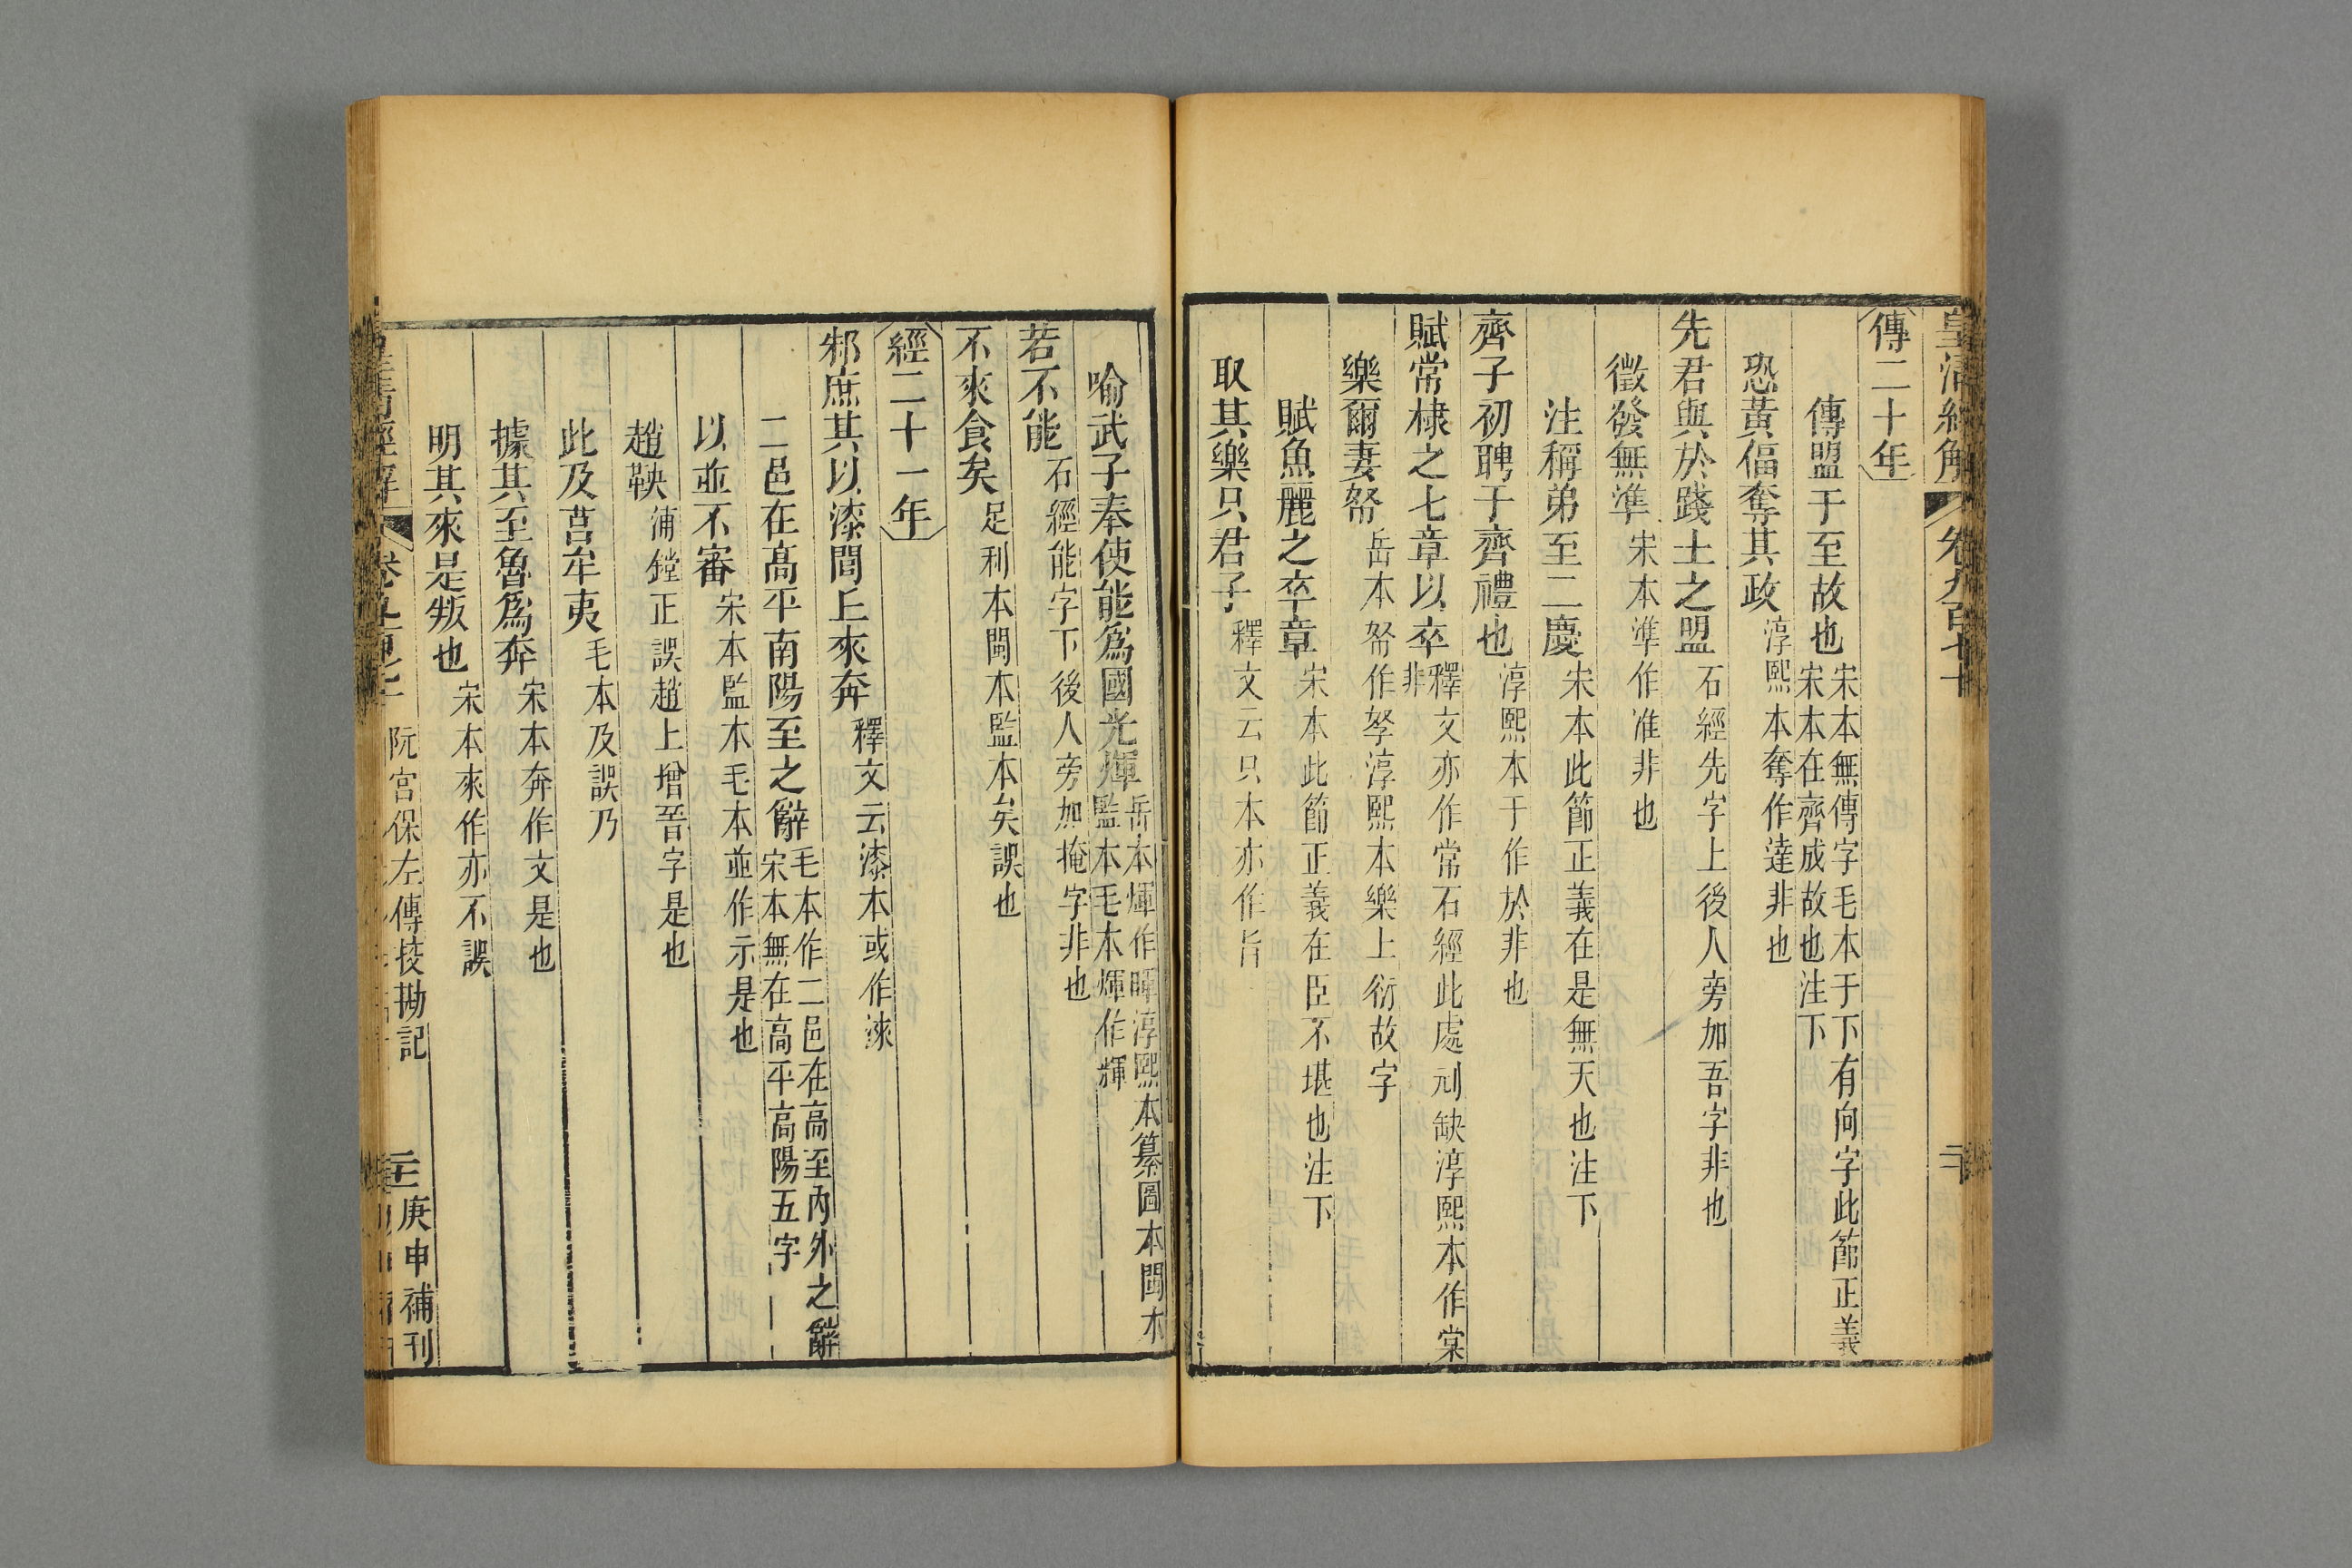 皇清經解 卷九百七十 二十
傳二十年
傳盟于至故也 宋本無傳字毛本于下有向字此節正義
宋本在齊成故也注下
恐黃偪奪其政 淳熙本奪作達非也
先君與於踐土之盟 石經先字上後人旁加吾字非也
徵發無準 宋本準作准非也
注稱弟至二慶 宋本此節正義在是無天也注下
齊子初聘于齊禮也 淳熙本于作於非也
賦常棣之七章以卒 釋文亦作常石經此處刓缺淳熙本作棠
非
樂爾妻帑 岳本帑作孥淳熙本樂上衍故字
賦魚麗之卒章 宋本此節正義在臣不堪也注下
取其樂只君子 釋文云只本亦作旨
喻武子奉使能爲國光煇 岳本煇作暉淳熙本纂圖本閩本
監本毛本煇作輝
若不能 石經能字下後人旁加掩字非也
不來食矣 足利本閩本監本矣誤也
經二十一年
邾庶其以漆閭丘來奔 釋文云漆本或作淶
二邑在高平南陽至之辭 毛本作二邑在高至內外之辭
宋本無在高平高陽五字
以並不審 宋本監本毛本並作示是也
趙鞅 浦鏜正誤趙上增晉字是也
此及莒牟夷 毛本及誤乃
據其至魯爲奔 宋本奔作文是也
明其來是叛也 宋本來作亦不誤
阮宮保左傳挍勘記
庚申補刊